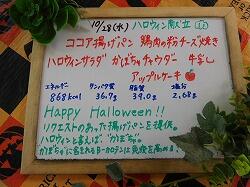 10/28(水) ハロウィン献立
ココア揚げパン 鶏肉の粉チーズ焼き
ハロウィンサラダ かぼちゃチャウダー 牛乳
アップルケーキ
エネルギー タンパク質 脂質 塩分
868kcal 36.7g 39.0g 2.68g
Happy Halloween!!
リクエストのあった揚げパンを提供。
ハロウィンと言えば、"かぼちゃ"。
かぼちゃに含まれるβ-カロテンは免疫を高める!